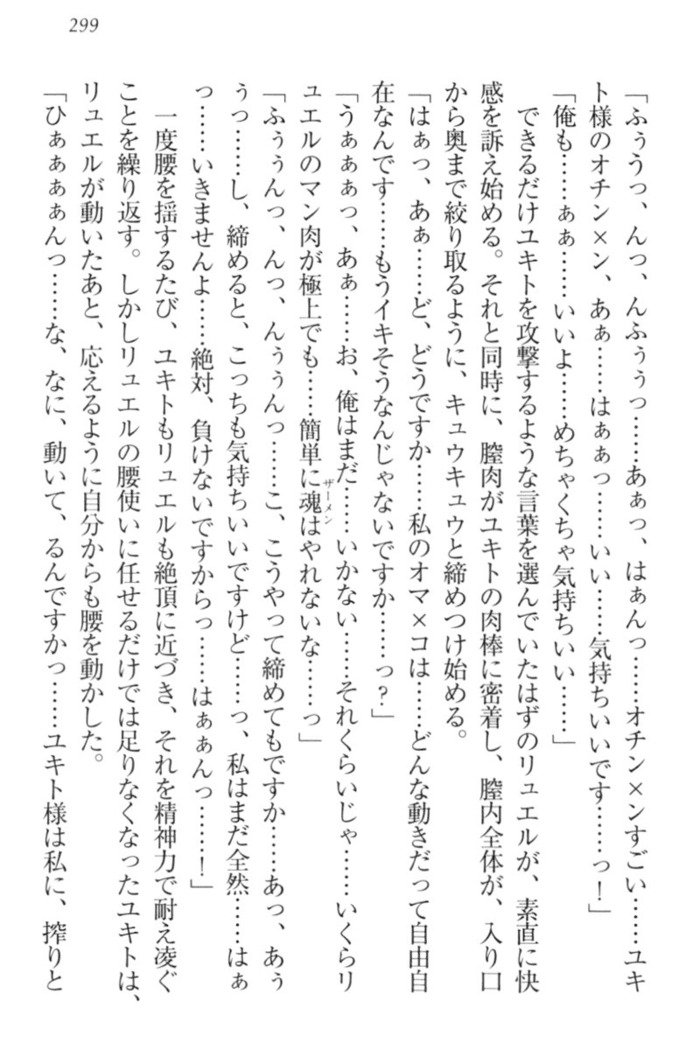 299
「ふぅうっ、んっ、んふぅぅっ……あぁっ、はぁんっ……オチン×ンすごい……ユキ
ト様のオチン×ン、あぁ……はぁぁっ……いい……気持ちいいです……っ!」
「俺も……ぁぁ……いいよ……めちゃくちゃ気持ちいい……」
できるだけユキトを攻撃するような言葉を選んでいたはずのリュエルが、素直に快
感を訴え始める。それと同時に、膣肉がユキトの肉棒に密着し、膣内全体が、入り口
から奥まで絞り取るように、キュウキュウと締めつけ始める。
「はぁっ、あぁ……ど、どうですか……私のオマ×コは……どんな動きだって自由自
在なんです……もうイキそうなんじゃないですか……っ?」
「うぁぁぁっ、あぁ……お、俺はまだ……いかない……それくらいじゃ……いくらリ
ュエルのマン肉が極上でも……簡単に魂はやれないな……っ」
ザーメン
「ふぅぅんっ、んっ、んぅぅんっ……こ、こうやって締めてもですか……あっ、あぅ
ぅっ……し、締めると、こっちも気持ちいいですけど……っ、私はまだ全然……はぁ
っ……いきませんよ……絶対、負けないですからっ……はぁぁんっ……!」
一度腰を揺するたび、ユキトもリュエルも絶頂に近づき、それを精神力で耐え凌ぐ
ことを繰り返す。しかしリュエルの腰使いに任せるだけでは足りなくなったユキトは、
リュエルが動いたあと、応えるように自分からも腰を動かした。
「ひぁぁぁぁんっ……な、なに、動いて、るんですかっ……ユキト様は私に、搾りと